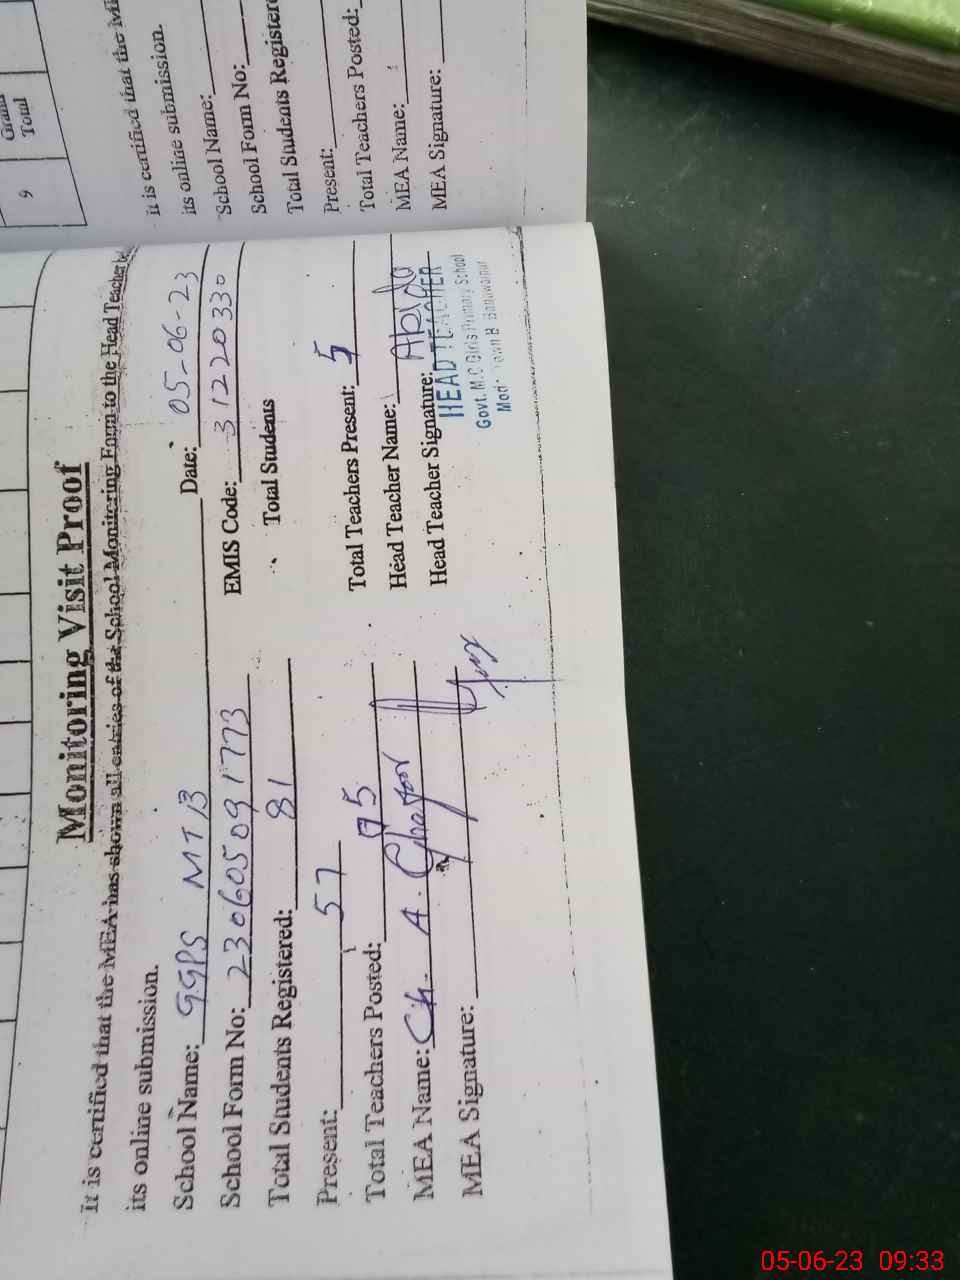 Monitoring Visit Proof
It is certified that the MEA has shown all entries of the School Monitoring Form to the Head Teacher
its online submission.
School Name: GGPS MTB Date: 05-06-23
School Form No: 23060509 1773 EMIS Code: 31220330
Total Students Registered: 81 Total Students
Present: 57
Total Teachers Posted: 05 Total Teachers Present: 5
MEA Name: Ch. A. Ghafoor Head Teacher Name: Abida
MEA Signature: Head Teacher Signature:
HEAD TEACHER
Govt. M.C Girls Primary School
Town B Bahawalpur
9 Grand
Total
it is certified that the
its online submission.
School Name:
School Form No:
Total Students Registere
Present:
Total Teachers Posted:
MEA Name:
MEA Signature:
05-06-23 09:33